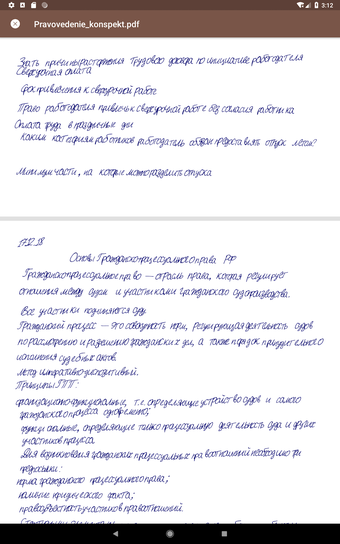 3:12
Pravovedenie_konspekt.pdf
Знать причины расторжения трудового договора по инициативе работодателя
Сверхурочная оплата
Срок привлечения к сверхурочной работе
Право работодателя привлекать к сверхурочной работе без согласия работника
Оплата труда в праздничные дни
Каким категориям работников работодатель обязан предоставить отпуск летом?
Минимум части, на которые можно разделить отпуска
17.12.18
Основы Гражданско-процессуального права РФ
Гражданско-процессуальное право — отрасль права, которая регулирует
отношения между судом и участниками гражданского судопроизводства.
Все участники подчиняются суду.
Гражданский процесс — это совокупность норм, регулирующая деятельность судов
по рассмотрению и разрешению гражданских дел, а также порядок принудительного
исполнения судебных актов.
Метод императивно-диспозитивный.
Принципы ГПП:
организационно-функциональные, т.е. определяющие устройство судов и самого
гражданского процесса одновременно;
функциональные, определяющие только процессуальную деятельность суда и других
участников процесса.
Для возникновения гражданских процессуальных правоотношений необходимо три
предпосылки:
норма гражданского процессуального права;
наличие юридического факта;
правосубъектность участников правоотношений.